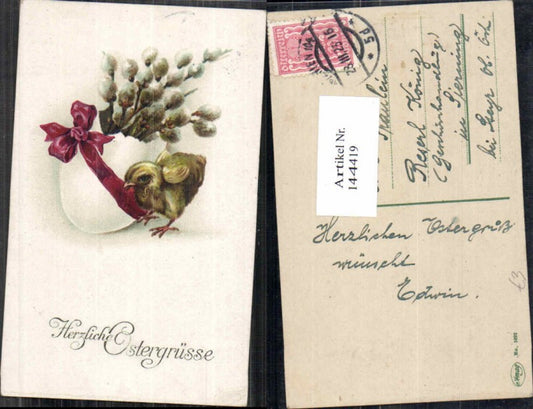 Herzliche Ostergrüsse
Artikel Nr.
14-4419
Fräulein
Reserl König
in Sierning
bei Steyr Ob. Öst.
Herzlichen Ostergruß
wünscht
Edwin.
No. 1491
£3